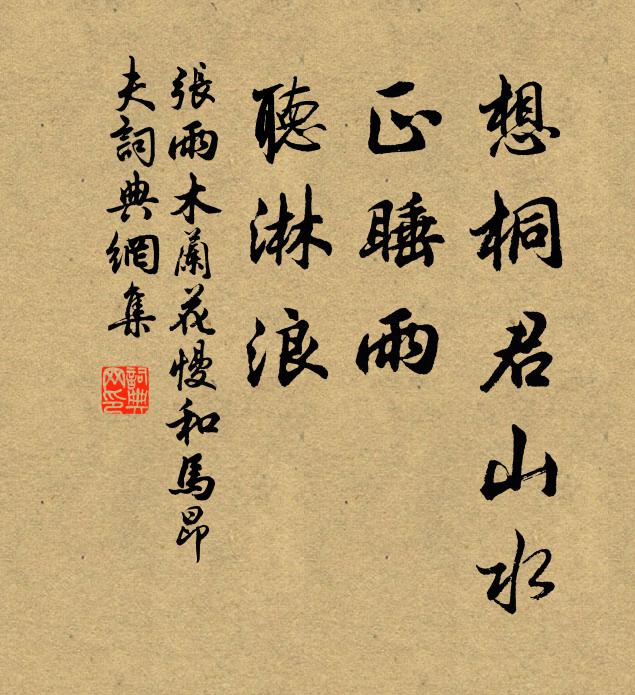 想桐君山水
正睡雨
聽淋浪
張雨木蘭花慢和馬昂
夫詞典網集
詞典
网印